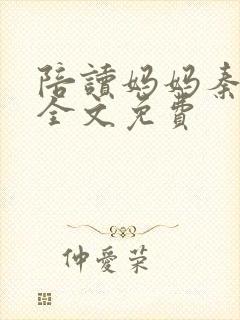 陪讀媽媽秦
全文免費
仲愛荣